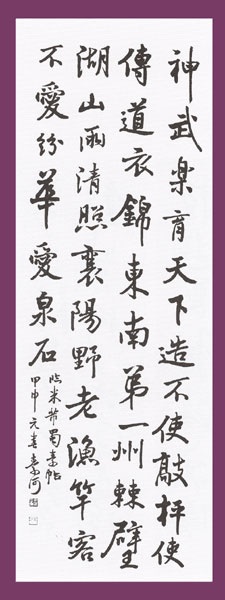 神武樂育天下造不使敲枰使
傳道衣錦東南第一州棘壁
湖山兩清照襄陽野老漁竿客
不愛紛華愛泉石
臨米芾蜀素帖
甲申元春素河